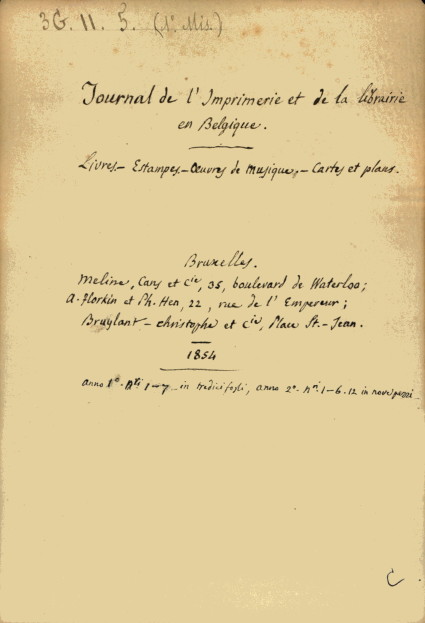 3G. II. 5. (1ª Mis.)
Journal de l'Imprimerie et de la librairie
en Belgique.
Livres.- Estampes.- Œuvres de musique.- Cartes et plans.
Bruxelles.
Meline, Cans et Cie, 35, boulevard de Waterloo;
A. Florkin et Ph. Hen, 22, rue de l'Empereur;
Bruylant-Christophe et Cie, Place St.-Jean.
1854
anno 1º. Nri 1-7 in tredici fogli, anno 2º. Nri. 1-6.12 in nove pezzi
C